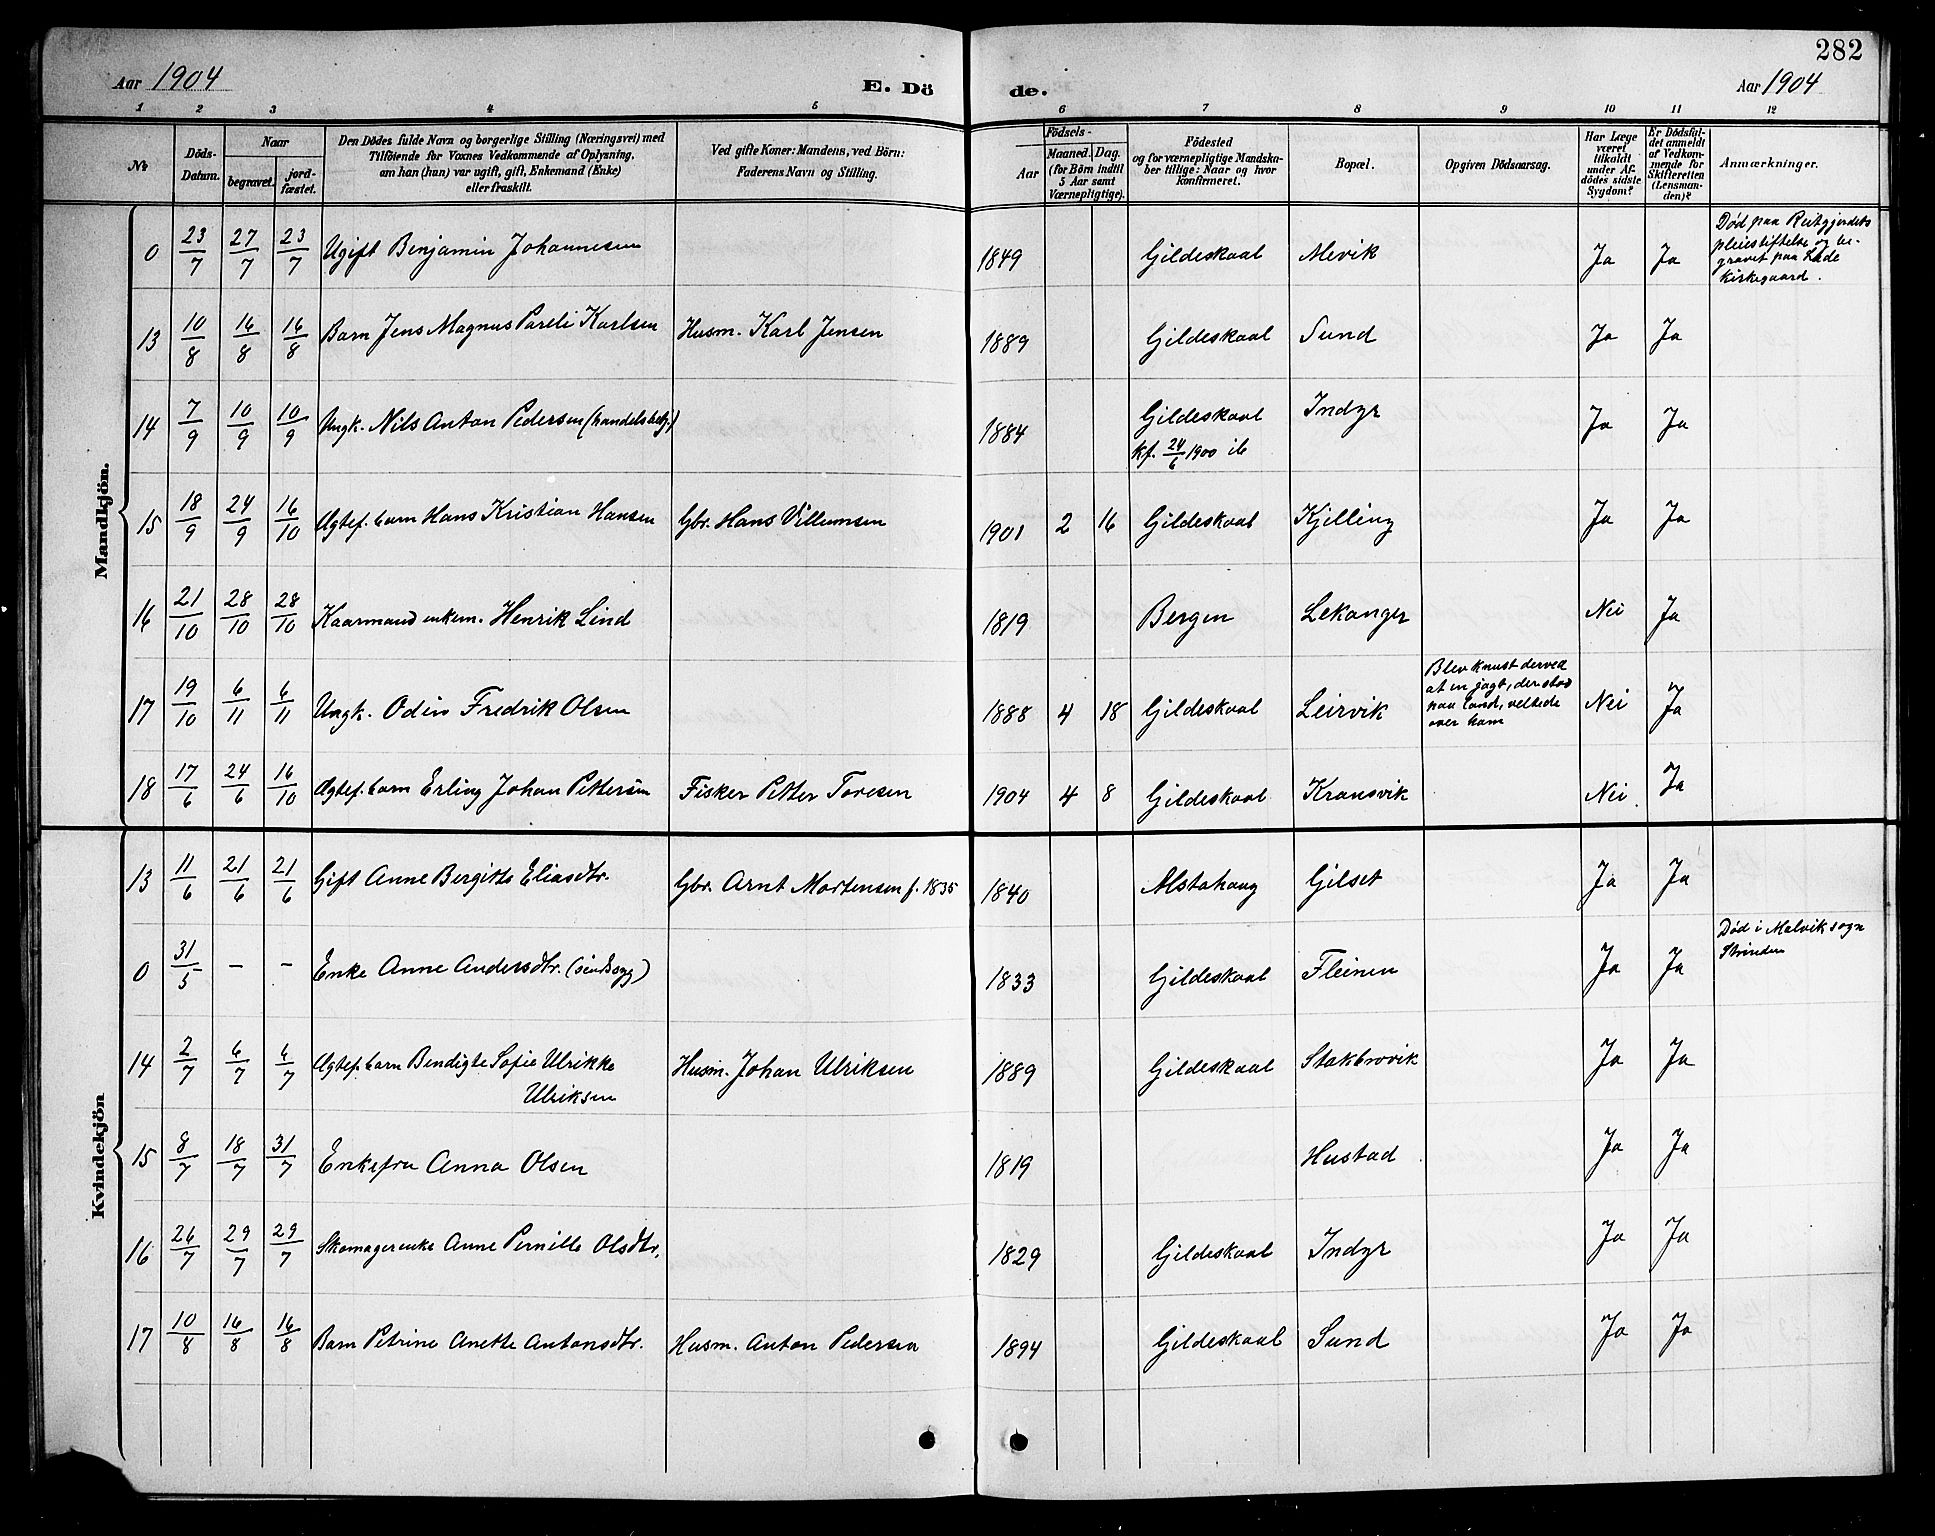 282
Aar 1904 E. Dö de. Aar 1904
1 2 3 4 5 6 7 8 9 10 11 12
No. Döds-Datum. Naar begravet. jordfæstet. Den Dödes fulde Navn og borgerlige Stilling (Næringsvei) med Tilföiende for Voxnes Vedkommende af Oplysning, om han (hun) var ugift, gift, Enkemand (Enke) eller fraskilt. Ved gifte Koner: Mandens, ved Börn: Faderens Navn og Stilling. Födsels- Aar Maaned. Dag. (for Börn indtil 5 Aar samt Værnepligtige). Födested og for værnepligtige Mandskaber tillige: Naar og hvor konfirmeret. Bopæl. Opgiven Dödsaarsag. Har Læge været tilkaldt under Afdödes sidste Sygdom? Er Dödsfaldet anmeldt af Vedkommende for Skifteretten (Lensmanden)? Anmærkninger.
Mandkjön.
0 23/7 27/7 23/7 Ugift Benjamin Johannesen 1849 Gildeskaal Alevik Ja Ja Død paa Reitgjerdets pleiestiftelse og begravet paa Lade kirkegaard.
13 10/8 16/8 16/8 Barn Jens Magnus Pareli Karlsen Husm. Karl Jensen 1889 Gildeskaal Sund Ja Ja
14 7/9 10/9 10/9 Ungk. Nils Anton Pedersen (handelsbetj.) 1884 Gildeskaal kf. 24/6 1900 ib Indyr Ja Ja
15 18/9 24/9 16/10 Ægtef. barn Hans Kristian Hansen Gbr. Hans Villumsen 1901 2 16 Gildeskaal Kjelling Ja Ja
16 21/10 28/10 28/10 Kaarmand enkem. Henrik Lind 1819 Bergen Lekanger Nei Ja
17 19/10 6/11 6/11 Ungk. Odin Fredrik Olsen 1888 4 18 Gildeskaal Leirvik Blev knust derved at en jagt, der stod paa land, veltede over ham Nei Ja
18 17/6 24/6 16/10 Ægtef. barn Erling Johan Pettersen Fisker Petter Toresen 1904 4 8 Gildeskaal Kransvik Nei. Ja
Kvindekjön
13 11/6 21/6 21/6 Gift Anne Bergitte Eliasdtr. Gbr. Arnt Mortensen f. 1835 1840 Alstahaug Gilset Ja Ja
0 31/5 - - Enke Anne Andersdtr. (sindssyg) 1833 Gildeskaal Fleinen Ja Ja Død i Malvik sogn Strinden
14 2/7 6/7 6/7 Ægtef. barn Bendigte Sofie Ulrikke Ulriksen Husm. Johan Ulriksen 1889 Gildeskaal Stakbrovik Ja Ja
15 8/7 18/7 31/7 Enkefru Anna Olsen 1819 Hustad Ja Ja
16 26/7 29/7 29/7 Skomagerenke Anne Pernille Olsdtr. 1829 Gildeskaal Indyr Ja Ja
17 10/8 16/8 16/8 Barn Petrine Anette Antonsdtr. Husm. Anton Pedersen 1894 Gildeskaal Sund Ja Ja